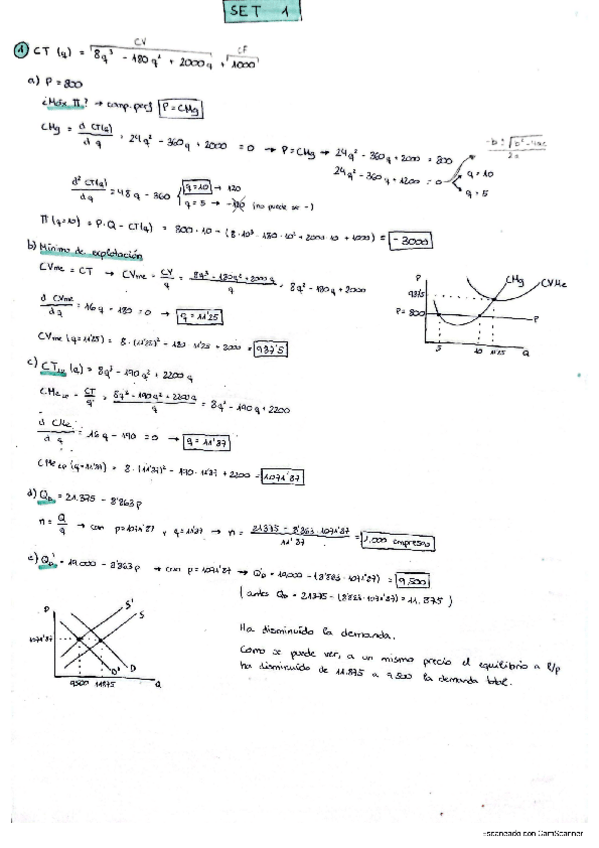 SET 1
CV CF
① CT (q) = 8q³ - 180q² + 2000q + 1000
a) P = 800
¿Máx Π? → comp. perf P = CMg
CMg = d CT(q) / dq = 24q² - 360q + 2000 = 0 → P = CMg → 24q² - 360q + 2000 = 800
24q² - 360q + 1200 = 0
-b ± √b² - 4ac / 2a
q = 10
q = 5
d² CT(q) / dq = 48q - 360
q = 10 → 120
q = 5 → -120 (no puede ser -)
Π (q=10) = P·Q - CT(q) = 800·10 - (8·10³ - 180·10² + 2000·10 + 1000) = -3000
b) Mínimo de explotación
CVMe = CT → CVMe = CV / q = 8q³ - 180q² + 2000q / q = 8q² - 180q + 2000
d CVMe / dq = 16q - 180 = 0 → q = 11'25
CVMe (q=11'25) = 8·(11'25)² - 180·11'25 + 2000 = 987'5
P
987'5
P = 800
CMg
CVMe
P
5 10 11'25 Q
c) CTLP (q) = 8q³ - 190q² + 2200q
CMeLP = CT / q = 8q³ - 190q² + 2200q / q = 8q² - 190q + 2200
d CMe / dq = 16q - 190 = 0 → q = 11'87
CMeLP (q=11'87) = 8·(11'87)² - 190·11'87 + 2200 = 1071'87
d) QD = 21.375 - 8'863p
n = Q / q → con p=1071'87 y q=11'87 → n = 21375 - 8'863·1071'87 / 11'87 = 1.000 empresas
e) QD' = 19.000 - 8'863p → con p=1071'87 → Q'D = 19.000 - (8'863·1071'87) = 9.500
(antes QD = 21.375 - (8'863·1071'87) = 11.875)
P
S'
S
1071'87
D' D
9.500 11.875 Q
Ha disminuido la demanda.
Como se puede ver, a un mismo precio el equilibrio a l/p
ha disminuido de 11.875 a 9.500 la demanda total.
Escaneado con CamScanner